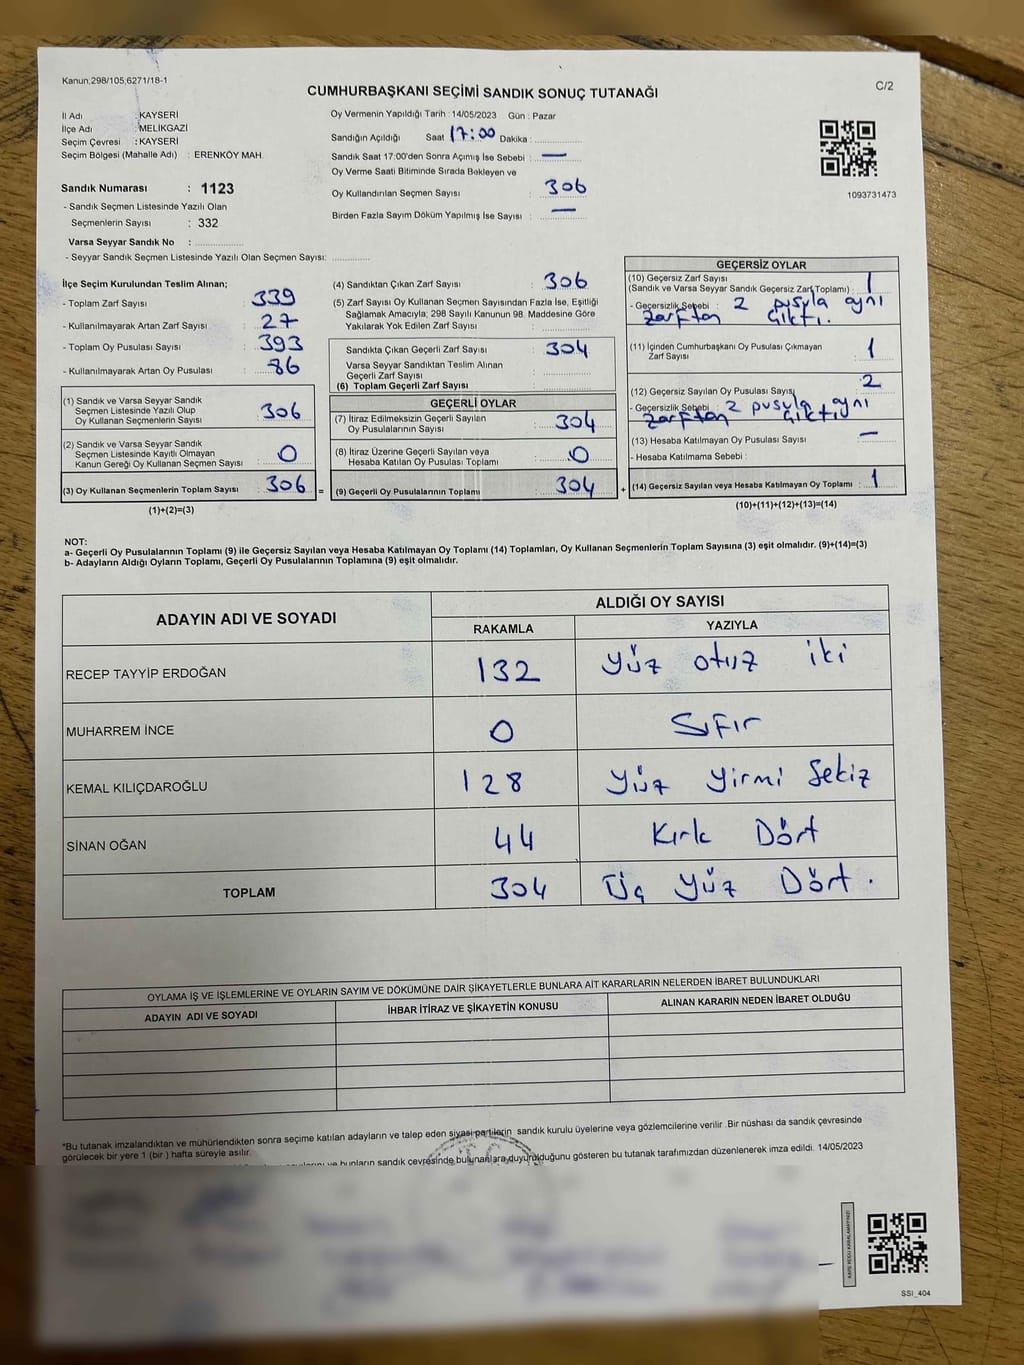 Kanun;298/105,6271/18-1
CUMHURBAŞKANI SEÇİMİ SANDIK SONUÇ TUTANAĞI
C/2
İl Adı : KAYSERİ
İlçe Adı : MELİKGAZİ
Seçim Çevresi : KAYSERİ
Seçim Bölgesi (Mahalle Adı) : ERENKÖY MAH.
Sandık Numarası : 1123
- Sandık Seçmen Listesinde Yazılı Olan
Seçmenlerin Sayısı : 332
Varsa Seyyar Sandık No :
- Seyyar Sandık Seçmen Listesinde Yazılı Olan Seçmen Sayısı:
Oy Vermenin Yapıldığı Tarih : 14/05/2023 Gün : Pazar
Sandığın Açıldığı Saat 17:00 Dakika :
Sandık Saat 17:00'den Sonra Açımış İse Sebebi : —
Oy Verme Saati Bitiminde Sırada Bekleyen ve
Oy Kullandırılan Seçmen Sayısı : 306
Birden Fazla Sayım Döküm Yapılmış İse Sayısı : —
1093731473
İlçe Seçim Kurulundan Teslim Alınan;
- Toplam Zarf Sayısı : 339
- Kullanılmayarak Artan Zarf Sayısı : 27
- Toplam Oy Pusulası Sayısı : 393
- Kullanılmayarak Artan Oy Pusulası : 86
(1) Sandık ve Varsa Seyyar Sandık
Seçmen Listesinde Yazılı Olup
Oy Kullanan Seçmenlerin Sayısı : 306
(2) Sandık ve Varsa Seyyar Sandık
Seçmen Listesinde Kayıtlı Olmayan
Kanun Gereği Oy Kullanan Seçmen Sayısı : 0
(3) Oy Kullanan Seçmenlerin Toplam Sayısı : 306 =
(1)+(2)=(3)
(4) Sandıktan Çıkan Zarf Sayısı : 306
(5) Zarf Sayısı Oy Kullanan Seçmen Sayısından Fazla İse, Eşitliği
Sağlamak Amacıyla; 298 Sayılı Kanunun 98. Maddesine Göre
Yakılarak Yok Edilen Zarf Sayısı :
Sandıkta Çıkan Geçerli Zarf Sayısı : 304
Varsa Seyyar Sandıktan Teslim Alınan
Geçerli Zarf Sayısı :
(6) Toplam Geçerli Zarf Sayısı :
GEÇERLİ OYLAR
(7) İtiraz Edilmeksizin Geçerli Sayılan
Oy Pusulalarının Sayısı : 304
(8) İtiraz Üzerine Geçerli Sayılan veya
Hesaba Katılan Oy Pusulası Toplamı : 0
(9) Geçerli Oy Pusulalarının Toplamı : 304 +
GEÇERSİZ OYLAR
(10) Geçersiz Zarf Sayısı
(Sandık ve Varsa Seyyar Sandık Geçersiz Zarf Toplamı) : 1
- Geçersizlik Sebebi : 2 pusula aynı
zarftan çıktı.
(11) İçinden Cumhurbaşkanı Oy Pusulası Çıkmayan
Zarf Sayısı : 1
(12) Geçersiz Sayılan Oy Pusulası Sayısı : 2
- Geçersizlik Sebebi : 2 pusula aynı
zarftan çıktı
(13) Hesaba Katılmayan Oy Pusulası Sayısı : —
- Hesaba Katılmama Sebebi :
(14) Geçersiz Sayılan veya Hesaba Katılmayan Oy Toplamı : 1
(10)+(11)+(12)+(13)=(14)
NOT:
a- Geçerli Oy Pusulalarının Toplamı (9) ile Geçersiz Sayılan veya Hesaba Katılmayan Oy Toplamı (14) Toplamları, Oy Kullanan Seçmenlerin Toplam Sayısına (3) eşit olmalıdır. (9)+(14)=(3)
b- Adayların Aldığı Oyların Toplamı, Geçerli Oy Pusulalarının Toplamına (9) eşit olmalıdır.
ADAYIN ADI VE SOYADI
ALDIĞI OY SAYISI
RAKAMLA YAZIYLA
RECEP TAYYİP ERDOĞAN 132 Yüz otuz iki
MUHARREM İNCE 0 Sıfır
KEMAL KILIÇDAROĞLU 128 Yüz Yirmi Sekiz
SİNAN OĞAN 44 Kırk Dört
TOPLAM 304 Üç Yüz Dört.
OYLAMA İŞ VE İŞLEMLERİNE VE OYLARIN SAYIM VE DÖKÜMÜNE DAİR ŞİKAYETLERLE BUNLARA AİT KARARLARIN NELERDEN İBARET BULUNDUKLARI
ADAYIN ADI VE SOYADI İHBAR İTİRAZ VE ŞİKAYETİN KONUSU ALINAN KARARIN NEDEN İBARET OLDUĞU
*Bu tutanak imzalandıktan ve mühürlendikten sonra seçime katılan adayların ve talep eden siyasi partilerin sandık kurulu üyelerine veya gözlemcilerine verilir .Bir nüshası da sandık çevresinde
görülecek bir yere 1 (bir ) hafta süreyle asılır.
ve bunların sandık çevresinde bulunanlara duyurulduğunu gösteren bu tutanak tarafımızdan düzenlenerek imza edildi. 14/05/2023
SSI_404